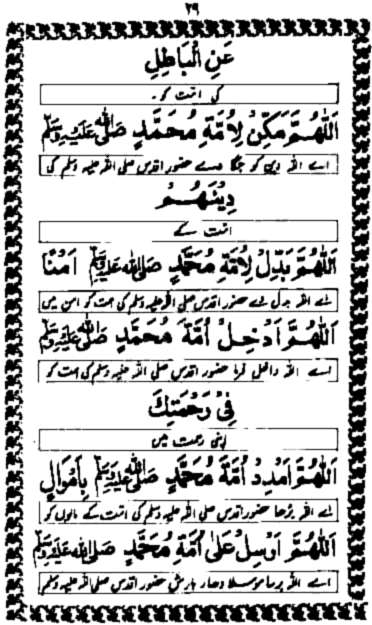 ۲۹
عَنِ الْبَاطِلِ
کی امت کو۔
اَللّٰهُمَّ مَكِّنْ لِاُمَّةِ مُحَمَّدٍ صَلَّى اللّٰهُ عَلَيْهِ وَسَلَّمَ
اے اللہ دین کو جگا دے حضور اقدس صلی اللہ علیہ وسلم کی
دِيْنَهُمْ
امت کے
اَللّٰهُمَّ بَدِّلْ لِاُمَّةِ مُحَمَّدٍ صَلَّى اللّٰهُ عَلَيْهِ وَسَلَّمَ اَمْنًا
اے اللہ بدل دے حضور اقدس صلی اللہ علیہ وسلم کی امت کو امن میں
اَللّٰهُمَّ اَدْخِلْ اُمَّةَ مُحَمَّدٍ صَلَّى اللّٰهُ عَلَيْهِ وَسَلَّمَ
اے اللہ داخل فرما حضور اقدس صلی اللہ علیہ وسلم کی امت کو
فِىْ رَحْمَتِكَ
اپنی رحمت میں
اَللّٰهُمَّ اَمْدِدْ اُمَّةَ مُحَمَّدٍ صَلَّى اللّٰهُ عَلَيْهِ وَسَلَّمَ بِاَمْوَالٍ
اے اللہ بڑھا حضور اقدس صلی اللہ علیہ وسلم کی امت کے مالوں کو
اَللّٰهُمَّ اَرْسِلْ عَلٰى اُمَّةِ مُحَمَّدٍ صَلَّى اللّٰهُ عَلَيْهِ وَسَلَّمَ
اے اللہ برسا موسلا دھار بارش حضور اقدس صلی اللہ علیہ وسلم